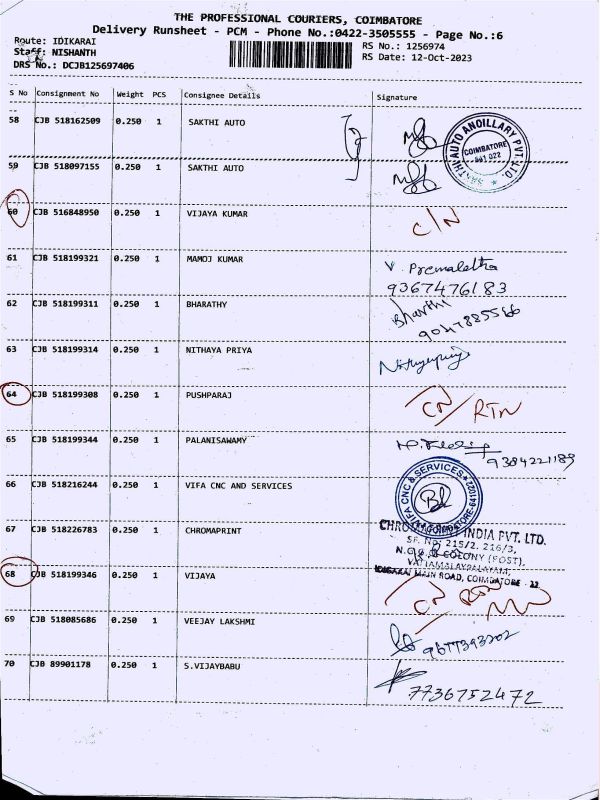 THE PROFESSIONAL COURIERS, COIMBATORE
Delivery Runsheet - PCM - Phone No.:0422-3505555 - Page No.:6
Route: IDIKARAI RS No.: 1256974
Staff: NISHANTH RS Date: 12-Oct-2023
DRS No.: DCJB125697406
S No Consignment No Weight PCS Consignee Details Signature
58 CJB 518162509 0.250 1 SAKTHI AUTO
SAKTHI AUTO ANCILLARY PVT. LTD. COIMBATORE 641 022
59 CJB 518097155 0.250 1 SAKTHI AUTO
60 CJB 516848950 0.250 1 VIJAYA KUMAR C/N
61 CJB 518199321 0.250 1 MAMOJ KUMAR V. Premalatha
9367476183
62 CJB 518199311 0.250 1 BHARATHY Bharthi
9047885566
63 CJB 518199314 0.250 1 NITHAYA PRIYA Nithyapriya
64 CJB 518199308 0.250 1 PUSHPARAJ CN/RTN
65 CJB 518199344 0.250 1 PALANISAWAMY
9384221189
66 CJB 518216244 0.250 1 VIFA CNC AND SERVICES
VIFA CNC & SERVICES
67 CJB 518226783 0.250 1 CHROMAPRINT
INDIA PVT. LTD.
SF. No: 215/2, 216/3,
COLONY (POST),
MAIN ROAD, COIMBATORE - 22
68 CJB 518199346 0.250 1 VIJAYA CN RTN
69 CJB 518085686 0.250 1 VEEJAY LAKSHMI
9677393202
70 CJB 89901178 0.250 1 S.VIJAYBABU
7736752472